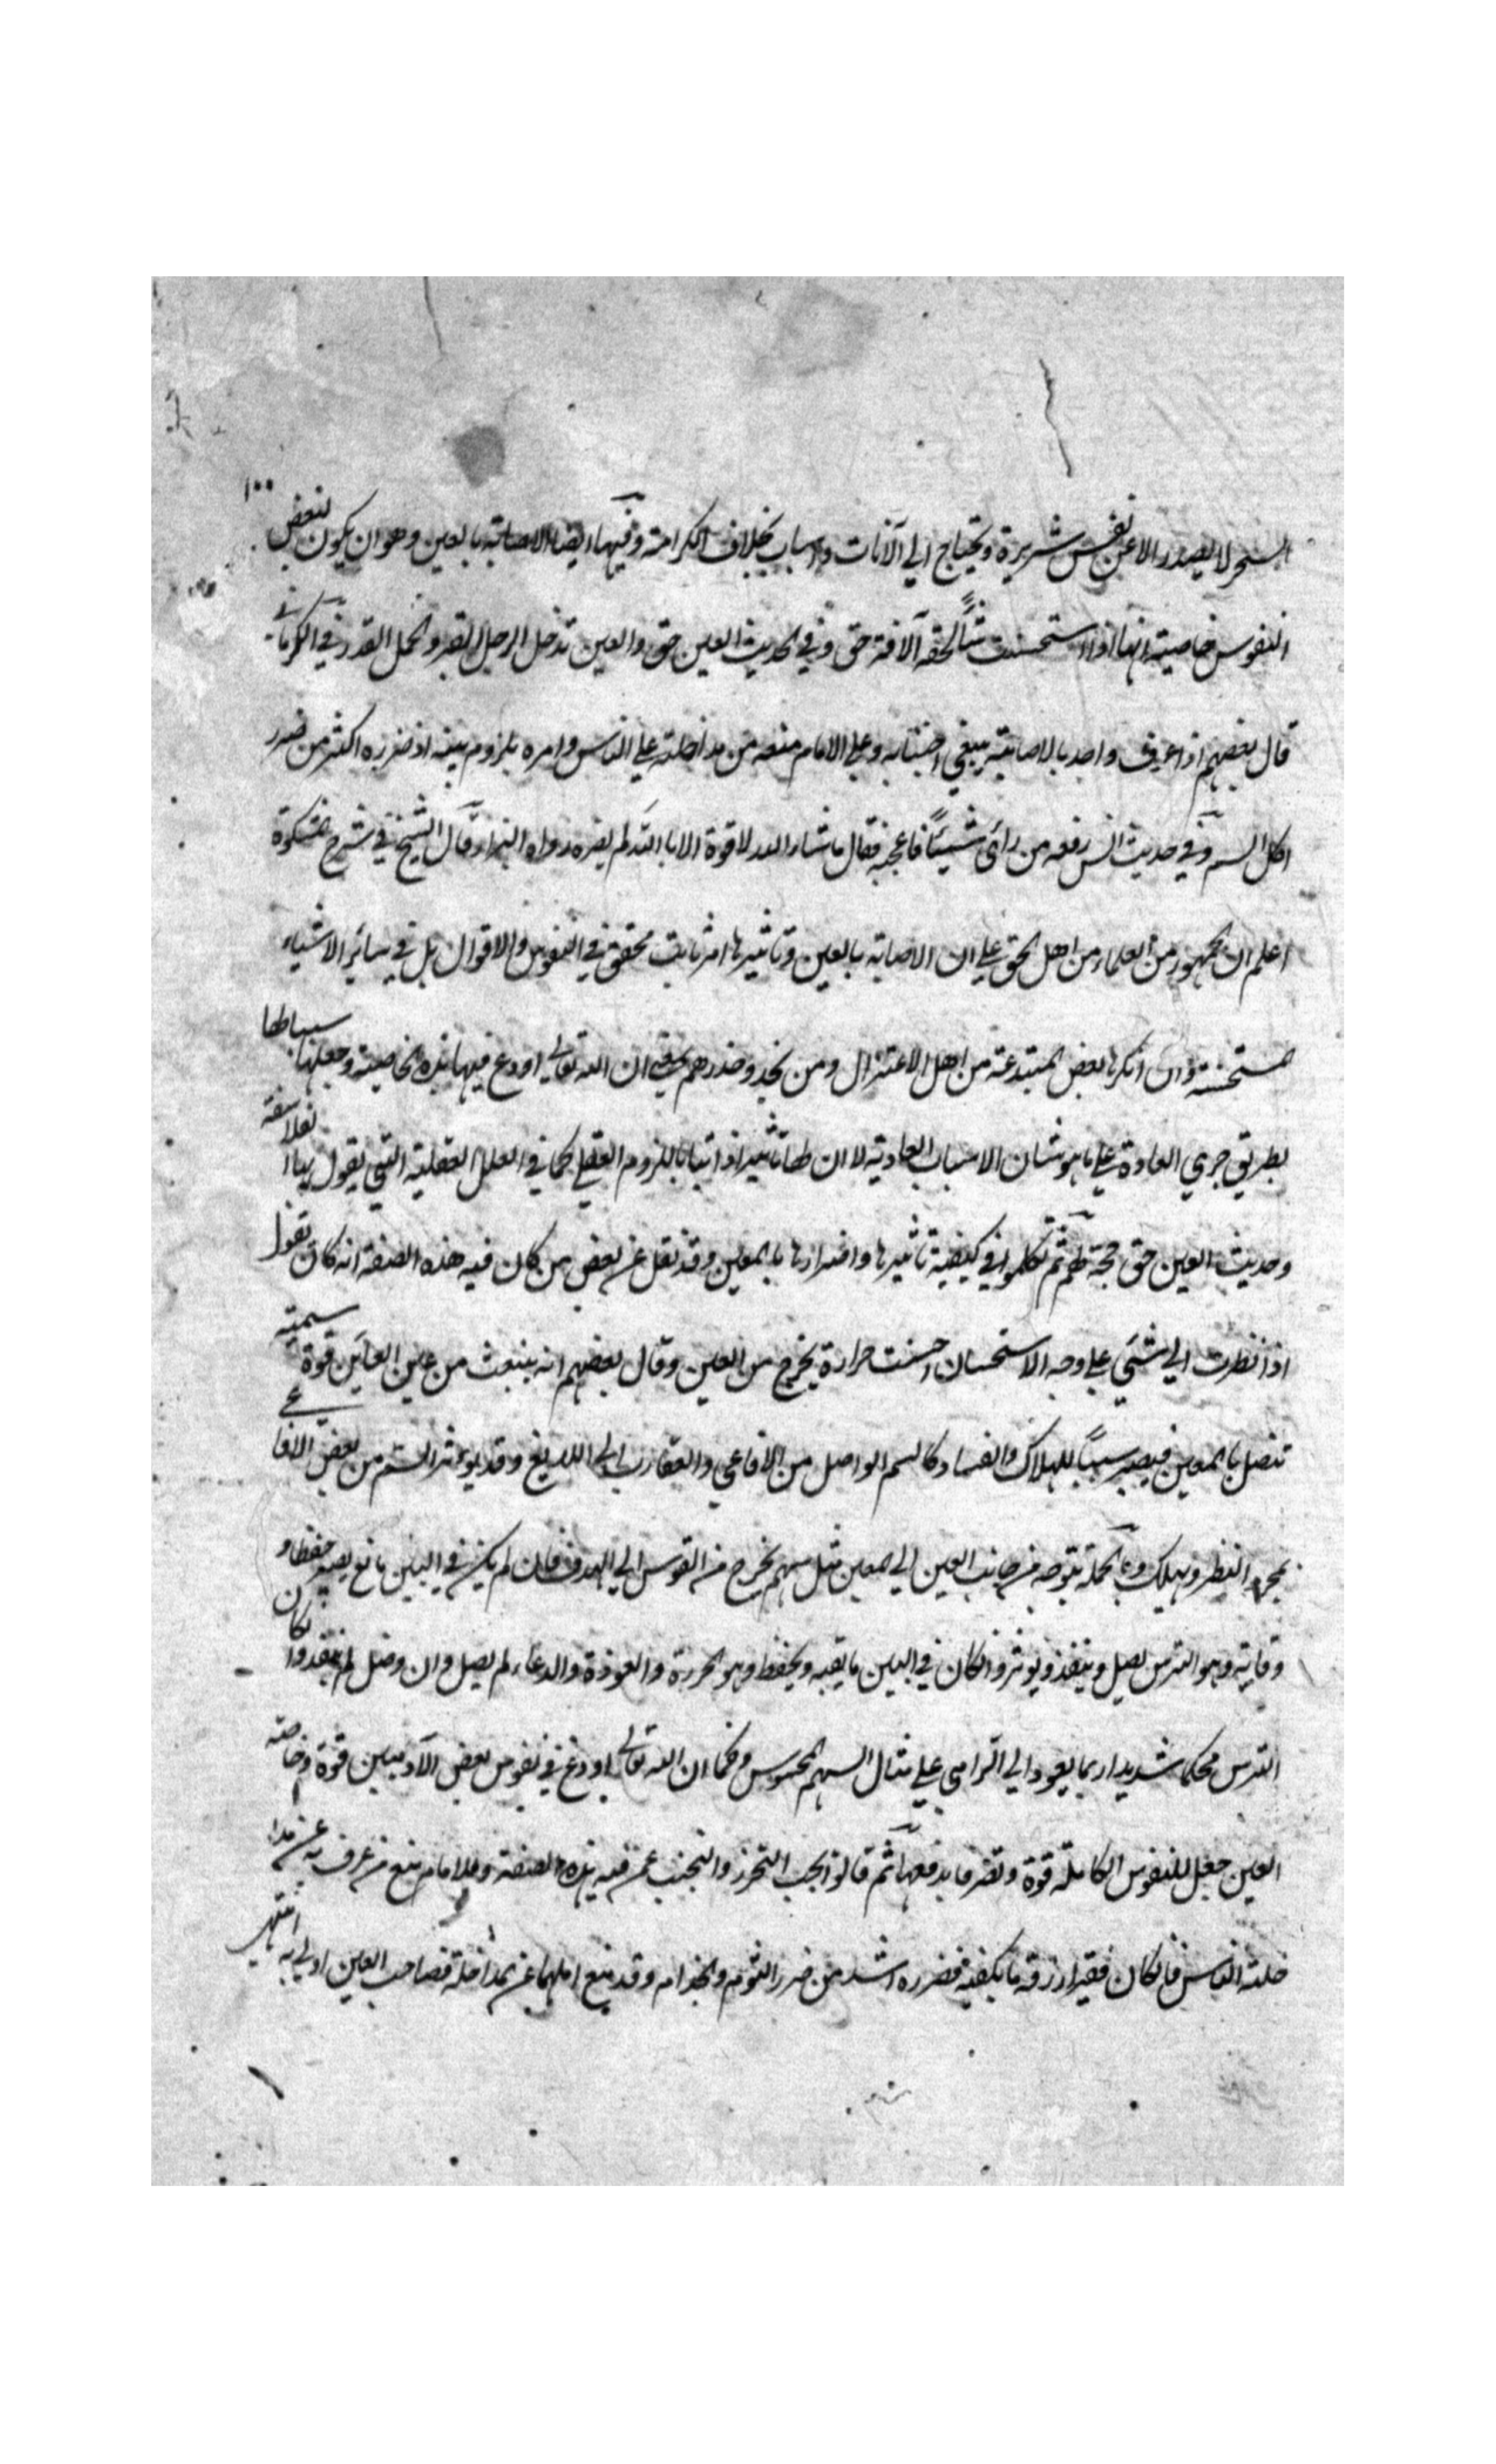 ١٠٠
السحر لا يصدر الا عن نفس شريرة ويحتاج الي آلات واسباب بخلاف الكرامة وفيها ايضا الاصابة بالعين وهو ان يكون لبعض
النفوس خاصية انها اذا استحسنت شئا لحقه الآفة حتى وفي الحديث العين حق والعين تدخل الرجل القبر والجمل القدر في الكرماني
قال بعضهم اذا عرف واحد بالاصابة ينبغي اجتنابه وعلي الامام منعه من مداخلته علي الناس وامره بلزوم بيته اذ ضرره اكثر من ضرر
اكل السم وفي حديث انس رفعه من رأى شيئًا فاعجبه فقال ما شاء الله لا قوة الا بالله لم يضره رواه البزار وقال الشيخ في شرح المشكوة
اعلم ان الجمهور من العلماء من اهل الحق علي ان الاصابة بالعين وتاثيرها امر ثابت محقق في النفوس والاقوال بل في سائر الاشياء
المستحسنة وان انكرها بعض المبتدعة من اهل الاعتزال ومن يحذو حذوهم يعني ان الله تعالى اودع فيها هذه الخاصية وجعلها سببا لها
بطريق جري العادة علي ما هو شان الاسباب العادية لا ان لها تاثيرا ذاتيا باللزوم العقلي كما في العلل العقلية التي يقول بها الفلاسفة
وحديث العين حق حجة لهم ثم تكلموا في كيفية تأثيرها واضرارها بالمعين وقد نقل عن بعض من كان فيه هذه الصفة انه كان يقول
اذا نظرت الي شئي علي وجه الاستحسان احسست حرارة يخرج من العين وقال بعضهم انه ينبعث من عين العائن قوة سمية
تتصل بالمعين فيصير سبباً للهلاك والفساد كالسم الواصل من الافاعي والعقارب الى اللديغ وقد يوءثر السم من بعض الافاعي
بمجرد النظر ويهلك وبالجملة يتوجه من جانب العين الي المعين مثل سهم يخرج من القوس الي الهدف فان لم يكن في البين مانع يصير حفظا و
وقاية وهو الترس يصل وينفذ ويوثر وان كان في البين ما يقيه ويحفظ وهو الحرز والعوذة والدعاء لم يصل وان وصل لم ينفذ وان كان
الترس محكما شديدا ربما يعود الي الرامي علي مثال السهم المحسوس وكما ان الله تعالى اودع في نفوس بعض الآدميين قوة وخاصة
العين جعل للنفوس الكاملة قوة وتصرفا يدفعها ثم قالوا يجب التحرز والتجنب عمن فيه هذه الصفة وللامام منع من عرف به عن مدا
خلة الناس فان كان فقيرا رزقه ما يكفيه فضرره اشد من ضرر الثوم والجذام وقد منع اهلهما عن المداخلة فصاحب العين اولي به انتهى